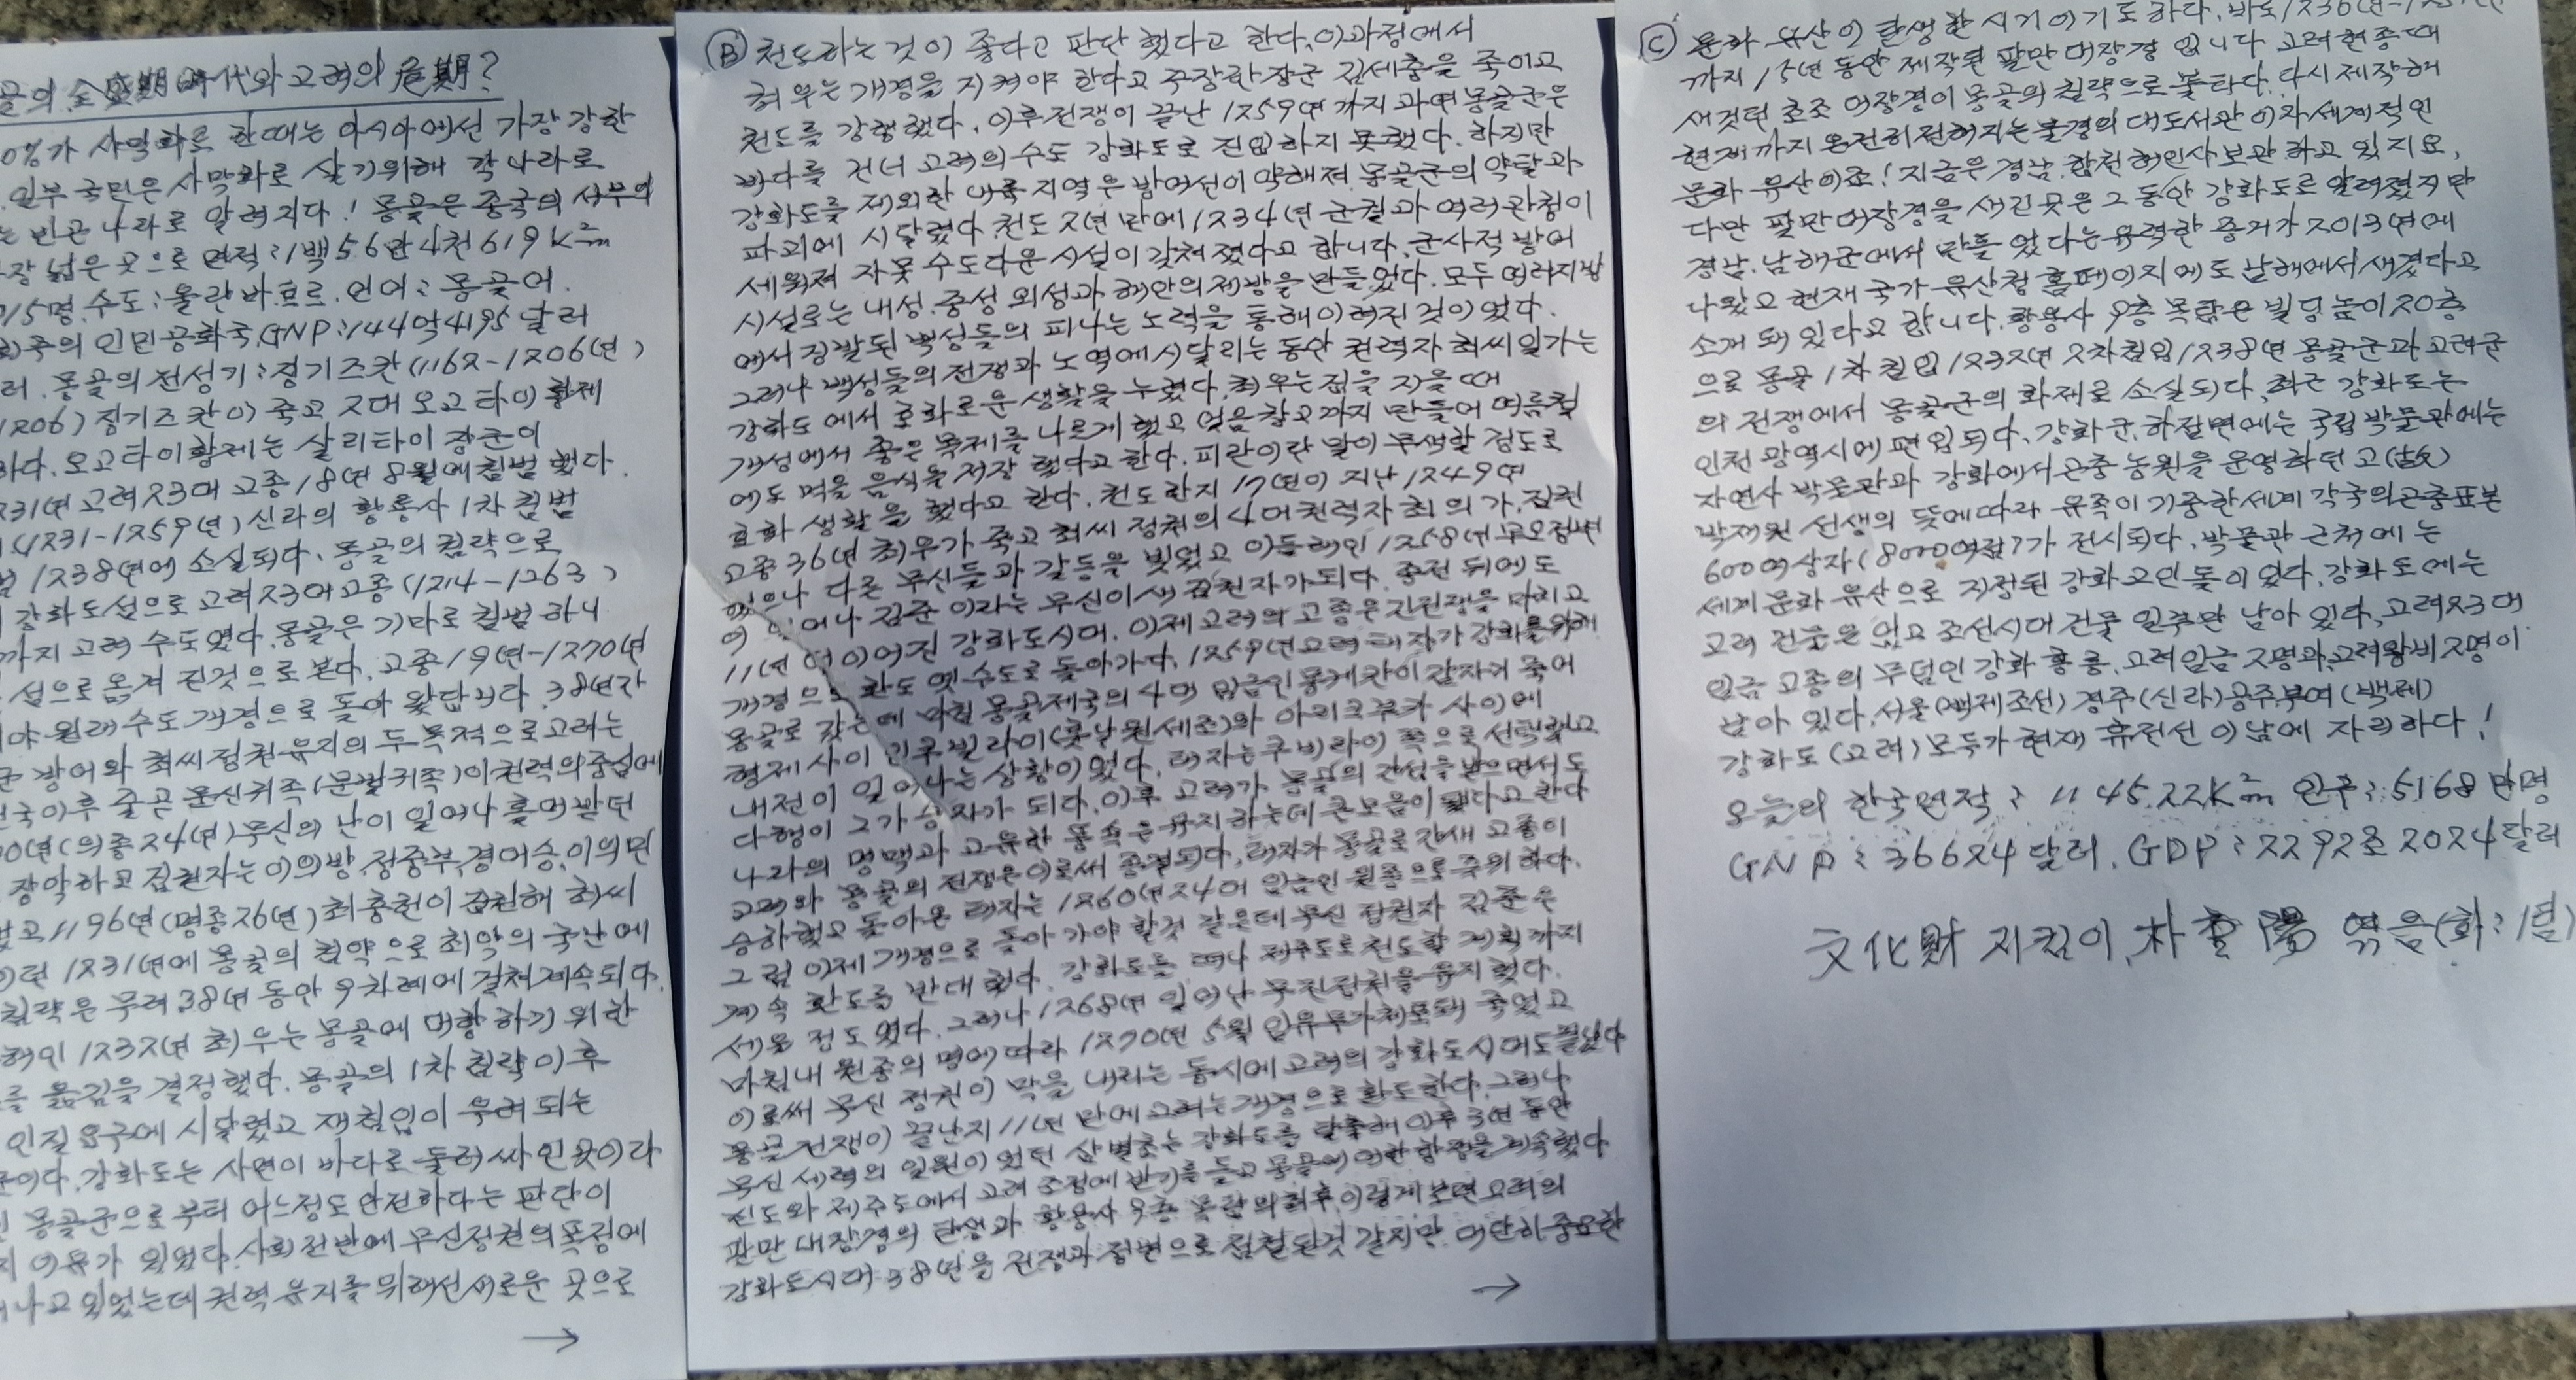 골의 全盛期 時代와 고려의 危期?
0%가 사막화로 한때는 아시아에선 가장 강한
일부 국민은 사막화로 살기위해 각 나라로
는 빈곤 나라로 알려지다! 몽골은 중국의 서부의
장 넓은 곳으로 면적:1백56만4천619K㎡
15명. 수도:울란바토르. 언어:몽골어.
주의 인민공화국.GNP:144억4195달러
러. 몽골의 전성기:징기즈칸(1162-1206년)
1206) 징기즈칸이 죽고 2대 오고타이 황제
하다. 오고타이황제는 살리타이 장군이
231년 고려23대 고종18년 8월에 침범했다.
(1231-1259년) 신라의 황룡사 1차 침범
1238년에 소실되다. 몽골의 침략으로
강화도섬으로 고려23대 고종(1214-1263)
까지 고려 수도였다. 몽골은 기마로 침범하니
섬으로 옮겨 진것으로 본다. 고종19년-1270년
야 원래수도 개경으로 돌아 왔답니다. 38년간
군 방어와 최씨정권유지의 두 목적으로 고려는
건국이후 줄곧 문신귀족(문벌귀족)이 권력의 중심에
0년(의종24년) 무신의 난이 일어나 홀대받던
장악하고 집권자는 이의방, 정중부, 경대승, 이의민
고 1196년(명종26년) 최충헌이 집권해 최씨
던 1231년에 몽골의 침략으로 최악의 국난에
침략은 무려 38년 동안 9차례에 걸쳐 계속되다.
해인 1232년 최우는 몽골에 대항하기 위한
를 옮김을 결정했다. 몽골의 1차 침략 이후
인질 요구에 시달렸고 재침입이 우려되는
이다. 강화도는 사면이 바다로 둘러싸인 곳이라
몽골군으로부터 어느정도 안전하다는 판단이
지 이유가 있었다. 사회 전반에 무신정권의 폭정에
나고 있었는데 권력 유지를 위해선 새로운 곳으로
→
Ⓑ 천도하는 것이 좋다고 판단했다고 한다. 이과정에서
최우는 개경을 지켜야 한다고 주장한 장군 김세충을 죽이고
천도를 강행했다. 이후 전쟁이 끝난 1259년까지 과연 몽골군은
바다를 건너 고려의 수도 강화도로 진입하지 못했다. 하지만
강화도를 제외한 내륙 지역은 방어선이 약해져 몽골군의 약탈과
파괴에 시달렸다. 천도 2년 만에 1234년 궁궐과 여러 관청이
세워져 자못 수도다운 시설이 갖춰졌다고 합니다. 군사적 방어
시설로는 내성, 중성, 외성과 해안의 제방을 만들었다. 모두 여러지방
에서 징발된 백성들의 피나는 노력을 통해 이려진 것이었다.
그러나 백성들의 전쟁과 노역에 시달리는 동안 권력자 최씨일가는
강화도에서 호화로운 생활을 누렸다. 최우는 집을 지을 때
개성에서 좋은 목제를 나르게 했고 얼음 창고까지 만들어 여름철
에도 먹을 음식을 저장 했다고 한다. 피란이란 말이 무색할 정도로
호화 생활을 했다고 한다. 천도한지 17년이 지난 1249년
고종36년 최우가 죽고 최씨 정권의 4대 권력자 최의가 집권
했으나 다른 무신들과 갈등을 빚었고 이듬해인 1258년 무오정변
이 일어나 김준이라는 무신이 새 집권자가 되다. 종전 뒤에도
11년 더 이어진 강화도시대. 이제 고려의 고종은 긴전쟁을 마치고
개경으로 환도 옛 수도로 돌아가다. 1259년 고려 태자가 강화를 위해
몽골로 갔는데 마침 몽골제국의 4대 임금인 몽케칸이 갑자기 죽어
형제 사이 인 쿠빌라이(훗날 원세조)와 아리크부카 사이에
내전이 일어나는 상황이었다. 태자는 쿠비라이 쪽으로 선택했고
다행이 그가 승자가 되다. 이후 고려가 몽골의 간섭을 받으면서도
나라의 명맥과 고유한 풍속은 유지하는데 큰 도움이 됐다고 한다
고려와 몽골의 전쟁은 이로써 종결되다. 태자가 몽골로 간새 고종이
승하했고 돌아온 태자는 1260년 24대 임금인 원종으로 즉위 하다.
그럼 이제 개경으로 돌아 가야 할것 같은데 무신 집권자 김준은
계속 환도를 반대했다. 강화도를 떠나 제주도로 천도할 계획까지
세울 정도였다. 그러나 1268년 일어난 무진정변을 유지했다.
마침내 원종의 명에 따라 1270년 5월 임유무가 체포돼 죽었고
이로써 무신 정권이 막을 내리는 동시에 고려의 강화도시대도 끝났다
몽골전쟁이 끝난지 11년 만에 고려는 개경으로 환도한다. 그러나
무신 세력의 일원이었던 삼별초는 강화도를 탈출해 이후 3년 동안
진도와 제주도에서 고려 조정에 반기를 들고 몽골에 대한 항쟁을 계속했다
판만 대장경의 탄생과 황룡사 9층 목탑의 최후. 이렇게 보면 고려의
강화도시대 38년을 전쟁과 정변으로 점철된것 같지만 대단히 중요한
→
Ⓒ 문화 유산이 탄생한 시기이기도 하다. 바로 1236년-
까지 15년 동안 제작된 팔만 대장경 입니다. 고려 현종때
새겻던 초조 대장경이 몽골의 침략으로 불타다. 다시 제작해
현재까지 온전히 전해지는 불경의 대도서관이자 세계적인
문화 유산이죠! 지금은 경남.합천 해인사 보관 하고 있지요.
다만 팔만대장경을 새긴곳은 그동안 강화도로 알려졌지만
경남.남해군에서 만들었다는 유력한 증거가 2013년에
나왔고 현재 국가유산청 홈페이지에도 남해에서 새겼다고
소개 돼 있다고 합니다. 황용사 9층 목탑은 빌딩 높이 20층
으로 몽골 1차 침입 1232년 2차침입 1238년 몽골군과 고려군
의 전쟁에서 몽골군의 화재로 소실되다. 최근 강화도는
인천 광역시에 편입되다. 강화군.하점면에는 국립박물관에는
자연사 박물관과 강화에서 곤충 농원을 운영하던 고(故)
박제원 선생의 뜻에 따라 유족이 기증한 세계 각국의 곤충표본
600여상자(8000여점)가 전시되다. 박물관 근처에는
세계문화 유산으로 지정된 강화 고인돌이 있다. 강화도에는
고려 건물은 없고 조선시대 건물 일부만 남아 있다. 고려23대
임금 고종의 무덤인 강화 홍릉. 고려임금 2명과 고려왕비 2명이
남아 있다. 서울(백제조선) 경주(신라) 공주부여(백제)
강화도(고려) 모두가 현재 휴전선 이남에 자리하다!
오늘의 한국면적: 1145.22K㎡ 인구:5168만명
GNP:36624달러. GDP:2292조2024달러
文化財 지킴이. 朴 陽 엮음(화:1월)